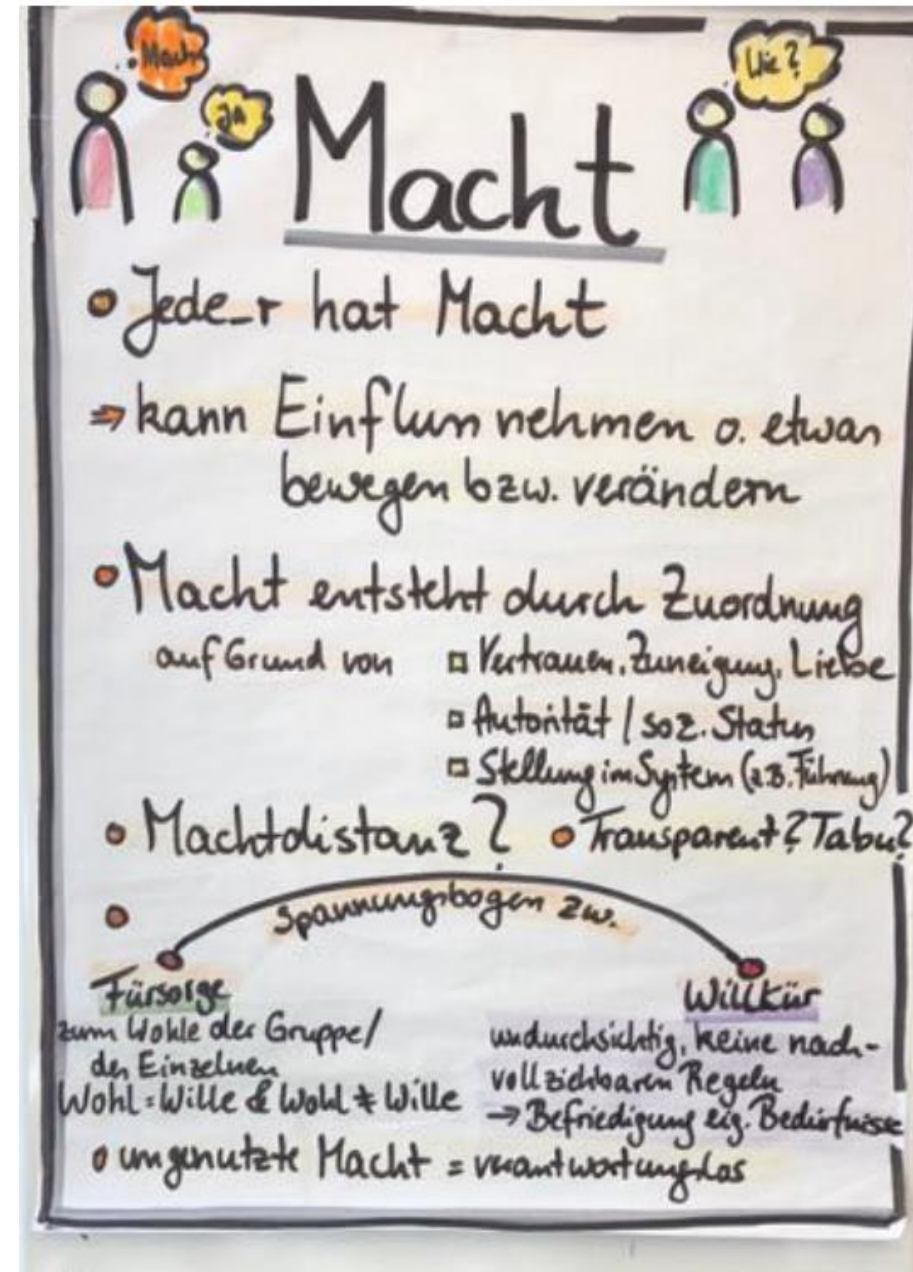 Mach
Ja
Wie?
Macht
Jede_r hat Macht
⇒ kann Einfluss nehmen o. etwas
bewegen bzw. verändern
Macht entsteht durch Zuordnung
auf Grund von
Vertrauen, Zuneigung, Liebe
Autorität / soz. Status
Stellung im System (z.B. Führung)
Machtdistanz?
Transparent? Tabu?
Spannungsbogen zw.
Fürsorge
zum Wohle der Gruppe/
des Einzelnen
Wohl = Wille & Wohl ≠ Wille
Willkür
undurchsichtig, keine nach-
vollziehbaren Regeln
→ Befriedigung eig. Bedürfnisse
ungenutzte Macht = verantwortungslos